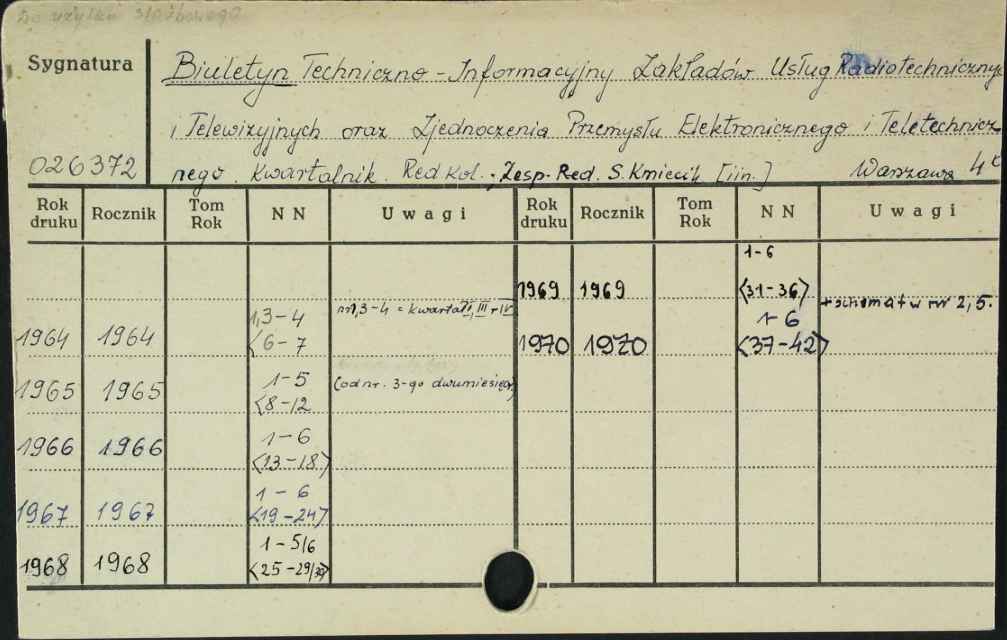 Do użytku służbowego
Sygnatura
Biuletyn Techniczno-Informacyjny Zakładów Usług Radiotechniczny
i Telewizyjnych oraz Zjednoczenia Przemysłu Elektronicznego i Teletechnicz
026372 nego. Kwartalnik. Red Kol.; Zesp. Red. S. Kmiecik [iin.] Warszawa 4°
Rok druku Rocznik Tom Rok NN Uwagi Rok druku Rocznik Tom Rok NN Uwagi
1969 1969 1-6 <31-36> + schemat w nr 2, 5.
1964 1964 1,3-4 <6-7 nr 1,3-4 = kwartał I, III + IV
1970 1970 1-6 <37-42>
1965 1965 1-5 <8-12 (od nr. 3-go dwumiesięcz)
1966 1966 1-6 <13-18>
1967 1967 1-6 <19-24>
1968 1968 1-5/6 <25-29/30>